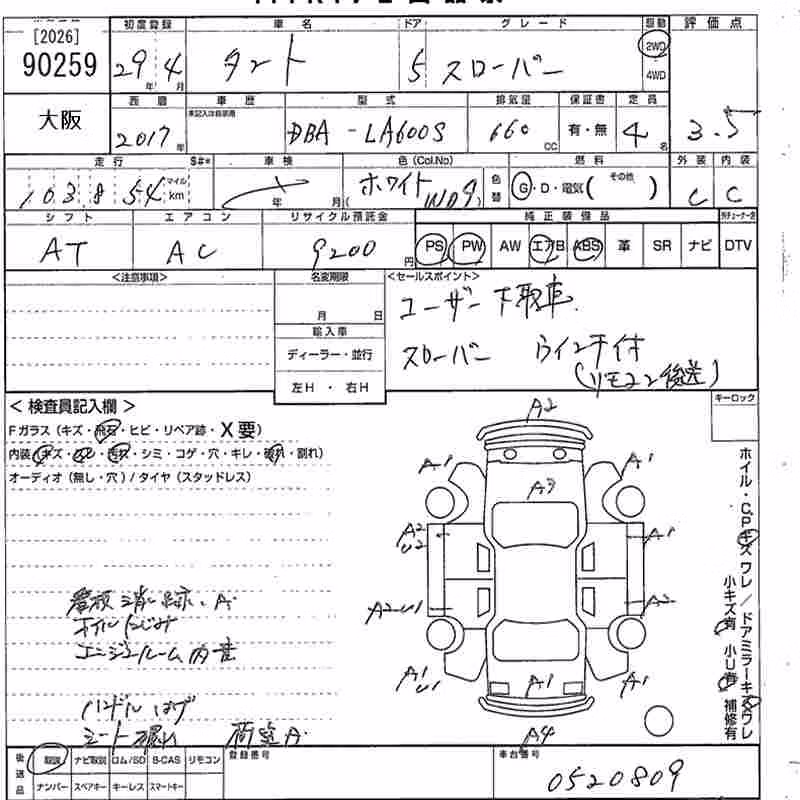 [2026]
90259
大阪
初度登録 車名 ドア グレード 駆動 評価点
29年 4月 タント 5 スローパー 2WD 4WD
西暦 車歴 型式 排気量 保証書 定員
2017年 未記入は自家用 DBA-LA600S 660cc 有・無 4名 3.5
走行 S#* 車検 色(Col.No) 色替 燃料 外装 内装
103854 マイル km 年 月 ホワイト(W09) G・D・電気( その他 ) C C
シフト エアコン リサイクル預託金 純正装備品
AT AC 9200円 PS PW AW エアB ABS 革 SR ナビ DTV
<注意事項> 名変期限 <セールスポイント>
月 日
輸入車
ディーラー・並行
左H・右H
ユーザー下取車
スローパー ウインチ付
(リモコン後送)
キーロック
<検査員記入欄>
Fガラス(キズ・飛石・ヒビ・リペア跡・X要)
内装(キズ・スレ・汚れ・シミ・コゲ・穴・キレ・破れ・割れ)
オーディオ(無し・穴)/タイヤ(スタッドレス)
看板消し跡、A
オイルにじみ
エンジンルーム内音
ハンドルはげ
シート
荷室A
A2
A1 A1
A3
A2 U2 A1
A2U1 A2
A1 U1 A1 A1
A4
ホイル・CPキズワレ/ドアミラーキズワレ
小キズ有 小U有 補修有
後送品 取説 ナビ取説 ロム/SD B-CAS リモコン
ナンバー スペアキー キーレス スマートキー
登録番号 車台番号
0520809